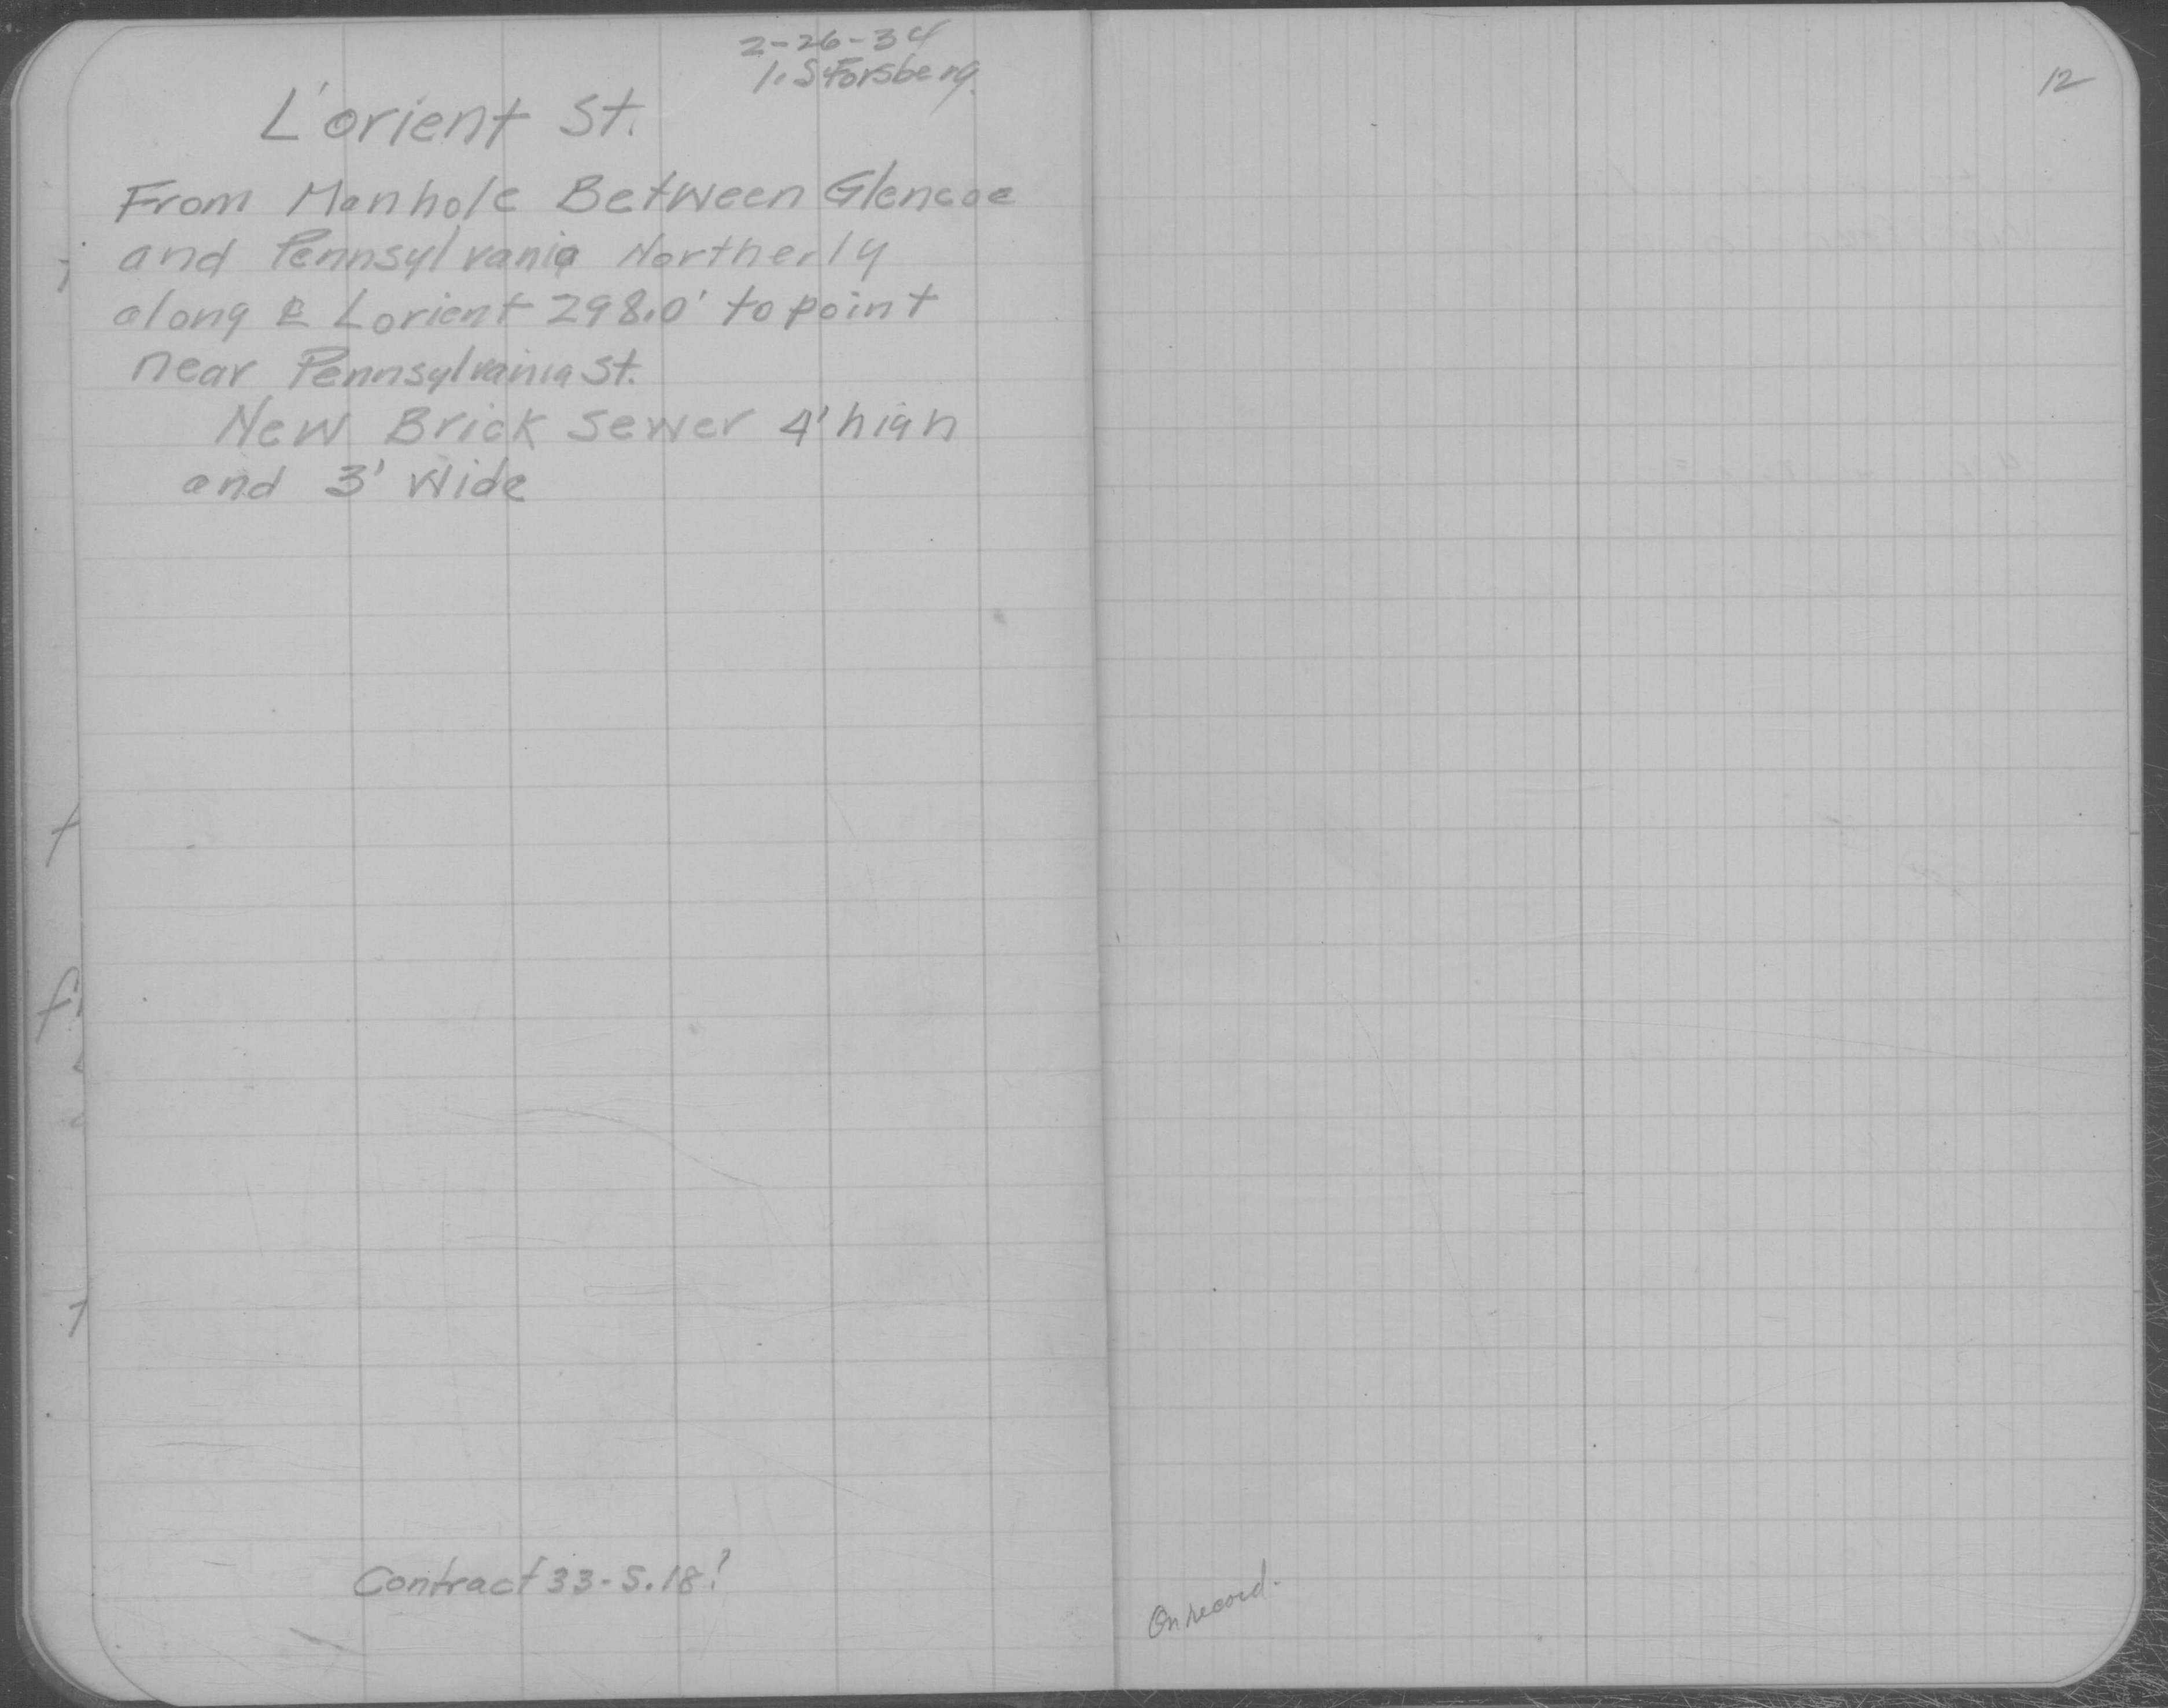 2-26-34
I. S. Forsberg.
L'orient St.
From Manhole Between Glencoe
and Pennsylvania Northerly
along ℄ Lorient 298.0' to point
near Pennsylvania St.
New Brick Sewer 4' high
and 3' Wide
Contract 33-S.18?
12
On record.